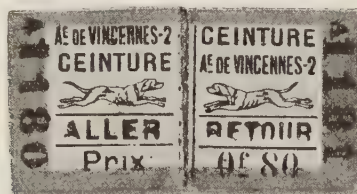 Aᴱ DE VINCENNES-2
CEINTURE
ALLER
Prix
CEINTURE
Aᴱ DE VINCENNES-2
RETOUR
0f 80